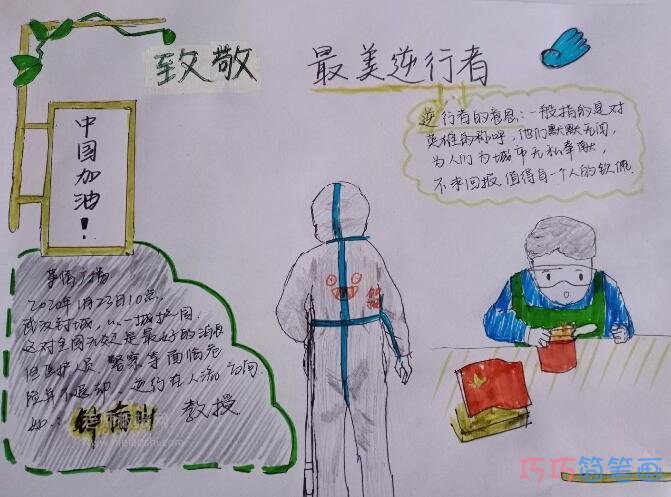 致敬 最美逆行者
中国加油！
逆行者的意思：一般指的是对
英雄的称呼，他们默默无闻，
为人们为城市无私奉献，
不求回报 值得每一个人的钦佩.
2020年1月23日10点.
武汉封城，
这对全国无疑是最好的消息
但医护人员 警察等面临危
险并不退却 逆行在人流之间.
如： 教授
巧巧简笔画